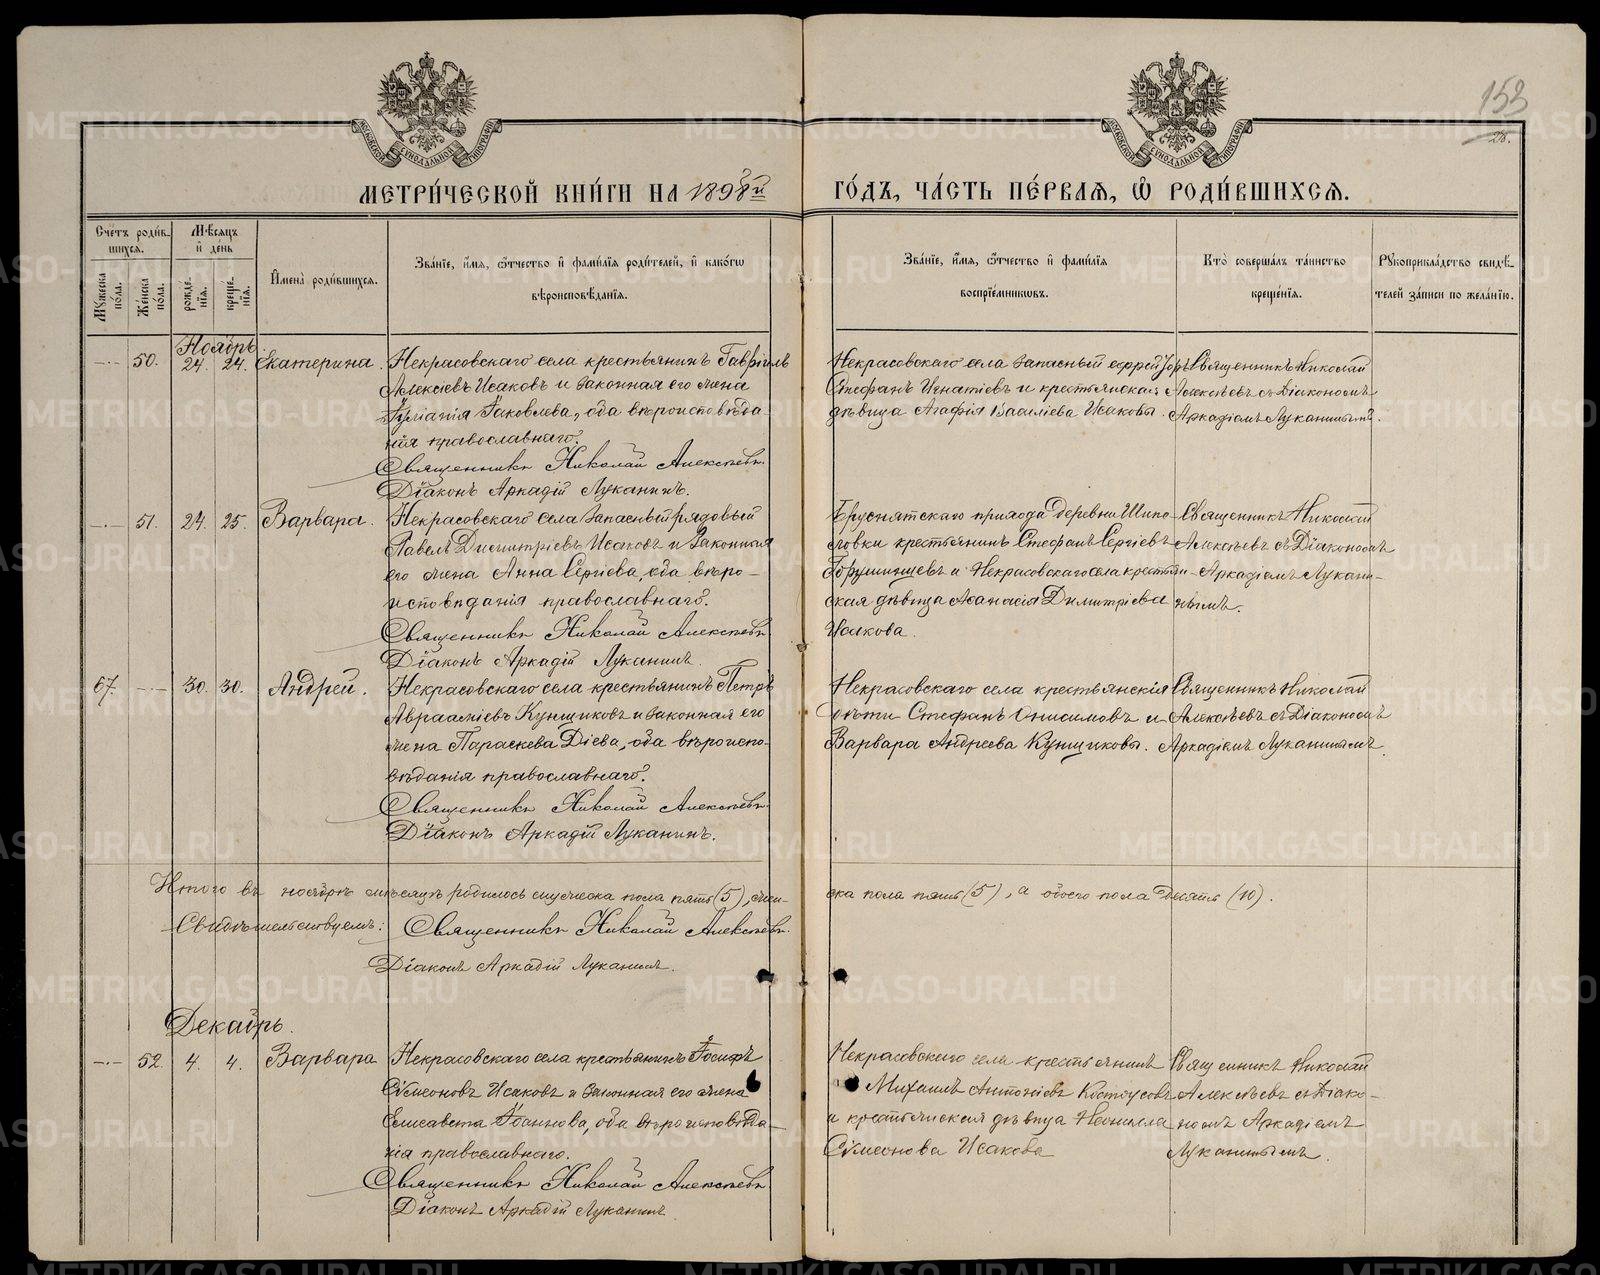 153
28.
МОСКОВСКОЙ СУНОДАЛЬНОЙ ТИПОГРАФІИ
МОСКОВСКОЙ СУНОДАЛЬНОЙ ТИПОГРАФІИ
МЕТРИ́ЧЕСКОЙ КНИ́ГИ НА 1898й
ГО́ДЪ, ЧА́СТЬ ПЕ́РВАѦ, Ѽ РОДИ́ВШИХСѦ.
Сче́тъ роди́в-
шихся.
Мѣ́сяцъ
и҆ де́нь
Мꙋжеска по́ла.
Же́нска по́ла.
рожде́-
нїѧ.
креще́-
нїѧ.
И҆мена̀ роди́вшихсѧ.
Зва́нїе, и҆́мѧ, ѻ҆́тчество и҆ фами́лїѧ роди́телей, и҆ како́гѡ
вѣроисповѣ́данїѧ.
Зва́нїе, и҆́мѧ, ѻ҆́тчество и҆ фами́лїѧ
воспрїе́мниковъ.
Кто̀ соверша́лъ та́инство
креще́нїѧ.
Рꙋкоприкла́дство свидѣ́-
телей за́писи по жела́нїю.
Ноябрь.
— 50. 24. 24. Екатерина.
Некрасовскаго села крестьянинъ Гавріилъ
Алексіевъ Исаковъ и законная его жена
Іуліанія Іаковлева, оба вѣроисповѣда-
нія православнаго.
Священникъ Николай Алексѣевъ.
Діаконъ Аркадій Луканинъ.
Некрасовскаго села запасный ефрейторъ
Стефанъ Игнатіевъ и крестьянская
дѣвица Агафія Василіева Исаковы.
Священникъ Николай
Алексѣевъ съ Діакономъ
Аркадіемъ Луканинымъ.
— 51. 24. 25. Варвара.
Некрасовскаго села запасный рядовый
Павелъ Димитріевъ Исаковъ и законная
его жена Анна Сергіева, оба вѣро-
исповѣданія православнаго.
Священникъ Николай Алексѣевъ
Діаконъ Аркадій Луканинъ.
Бруснятскаго прихода деревни Шипи-
ловки крестьянинъ Стефанъ Сергіевъ
и Некрасовскаго села крестьян-
ская дѣвица Аѳанасія Димитріева
Исакова.
Священникъ Николай
Алексѣевъ съ Діакономъ
Аркадіемъ Лукани-
нымъ.
67. — 30. 30. Андрей.
Некрасовскаго села крестьянинъ Петръ
Авраамієвъ Кунщиковъ и законная его
жена Параскева Діева, оба вѣроиспо-
вѣданія православнаго.
Священникъ Николай Алексѣевъ
Діаконъ Аркадій Луканинъ.
Некрасовскаго села крестьянскія
дѣти Стефанъ Онисимовъ и
Варвара Андреева Кунщиковы.
Священникъ Николай
Алексѣевъ съ Діакономъ
Аркадіемъ Луканинымъ.
Итого въ ноябрѣ мѣсяцѣ родилось мужеска пола пять (5), жен-
ска пола пять (5), а обоего пола десять (10).
Свидѣтельствуемъ: Священникъ Николай Алексѣевъ.
Діаконъ Аркадій Луканинъ.
Декабрь.
— 52. 4. 4. Варвара
Некрасовскаго села крестьянинъ Іосифъ
Сѵмеоновъ Исаковъ и законная его жена
Елисавета Іоаннова, оба вѣроисповѣда-
нія православнаго.
Священникъ Николай Алексѣевъ
Діаконъ Аркадій Луканинъ
Некрасовскаго села крестьянинъ
Михаилъ Антоніевъ Костоусовъ
и крестьянская дѣвица Неонилла
Сѵмеонова Исакова
Священникъ Николай
Алексѣевъ съ Діако-
номъ Аркадіемъ
Луканинымъ.
METRIKI.GASO-URAL.RU